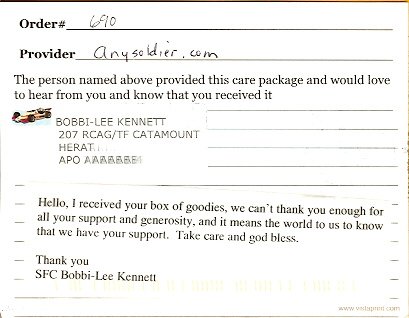 Order# 690
Provider anysoldier.com
The person named above provided this care package and would love
to hear from you and know that you received it
BOBBI-LEE KENNETT
207 RCAG/TF CATAMOUNT
HERAT
APO
Hello, I received your box of goodies, we can't thank you enough for
all your support and generosity, and it means the world to us to know
that we have your support. Take care and god bless.
Thank you
SFC Bobbi-Lee Kennett
www.vistaprint.com